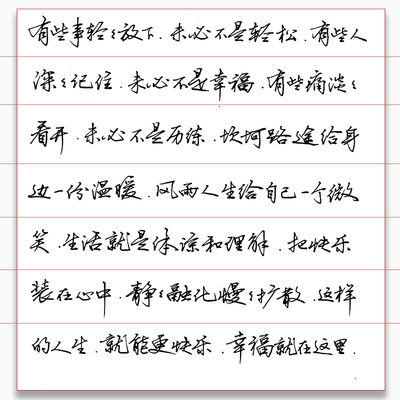 有些事轻轻放下.未必不是轻松.有些人
深深记住.未必不是幸福.有些痛淡淡
看开.未必不是历练.坎坷路途给身
边一份温暖.风雨人生给自己一个微
笑.生活就是体谅和理解.把快乐
装在心中.静静融化慢慢扩散.这样
的人生.就能更快乐.幸福就在这里.